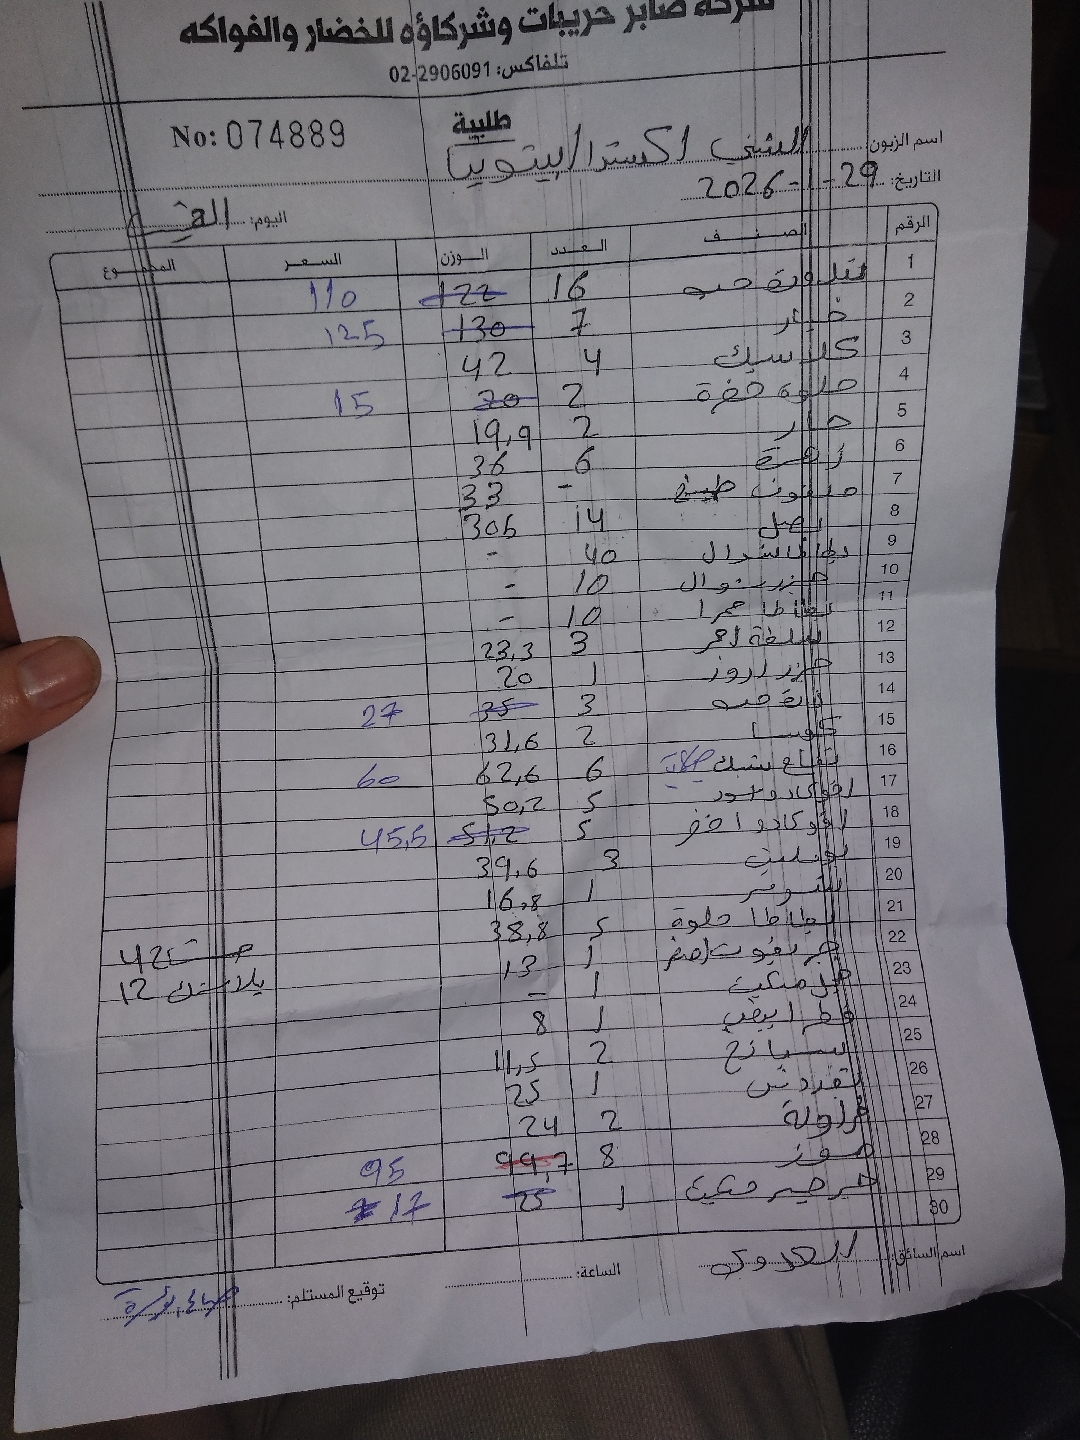 شركة صابر حريبات وشركاؤه للخضار والفواكه
تلفاكس: 02-2906091
No: 074889
طلبية
اسم الزبون: الشني اكسترا/بيتونيا
التاريخ: 29-1-2026
اليوم:
الرقم الصنف العدد الوزن السعر المجموع
1 بندورة حب 16 122 110
2 خيار 7 130 125
3 كلاسيك 4 42
4 حلوة خضرة 2 20 15
5 حار 2 19,9
6 زهرة 6 36
7 ملفوف طبيخ - 33
8 بصل 14 305
9 بطاطا شوال 40 -
10 جزر شوال 10 -
11 بطاطا حمرا 10 -
12 سلطة احمر 3 23,3
13 جزر اروز 1 20
14 حب 3 35 27
15 كوسا 2 31,6
16 تفاح سبيك 6 62,6 60
17 افوكادو اسود 5 50,2
18 افوكادو اخضر 5 51,2 45,5
19 بوملي 3 39,6
20 1 16,8
21 بطاطا حلوة 5 38,8
22 جريفوت اصفر 1 13
23 1 -
24 فطر ابيض 1 8
25 سبانخ 2 11,5
26 بقدونس 1 25
27 فراولة 2 24
28 موز 8 99,7 95
29 جرجير 1 25 17
30
42
بلاستك 12
اسم السائق:
الساعة:
توقيع المستلم: